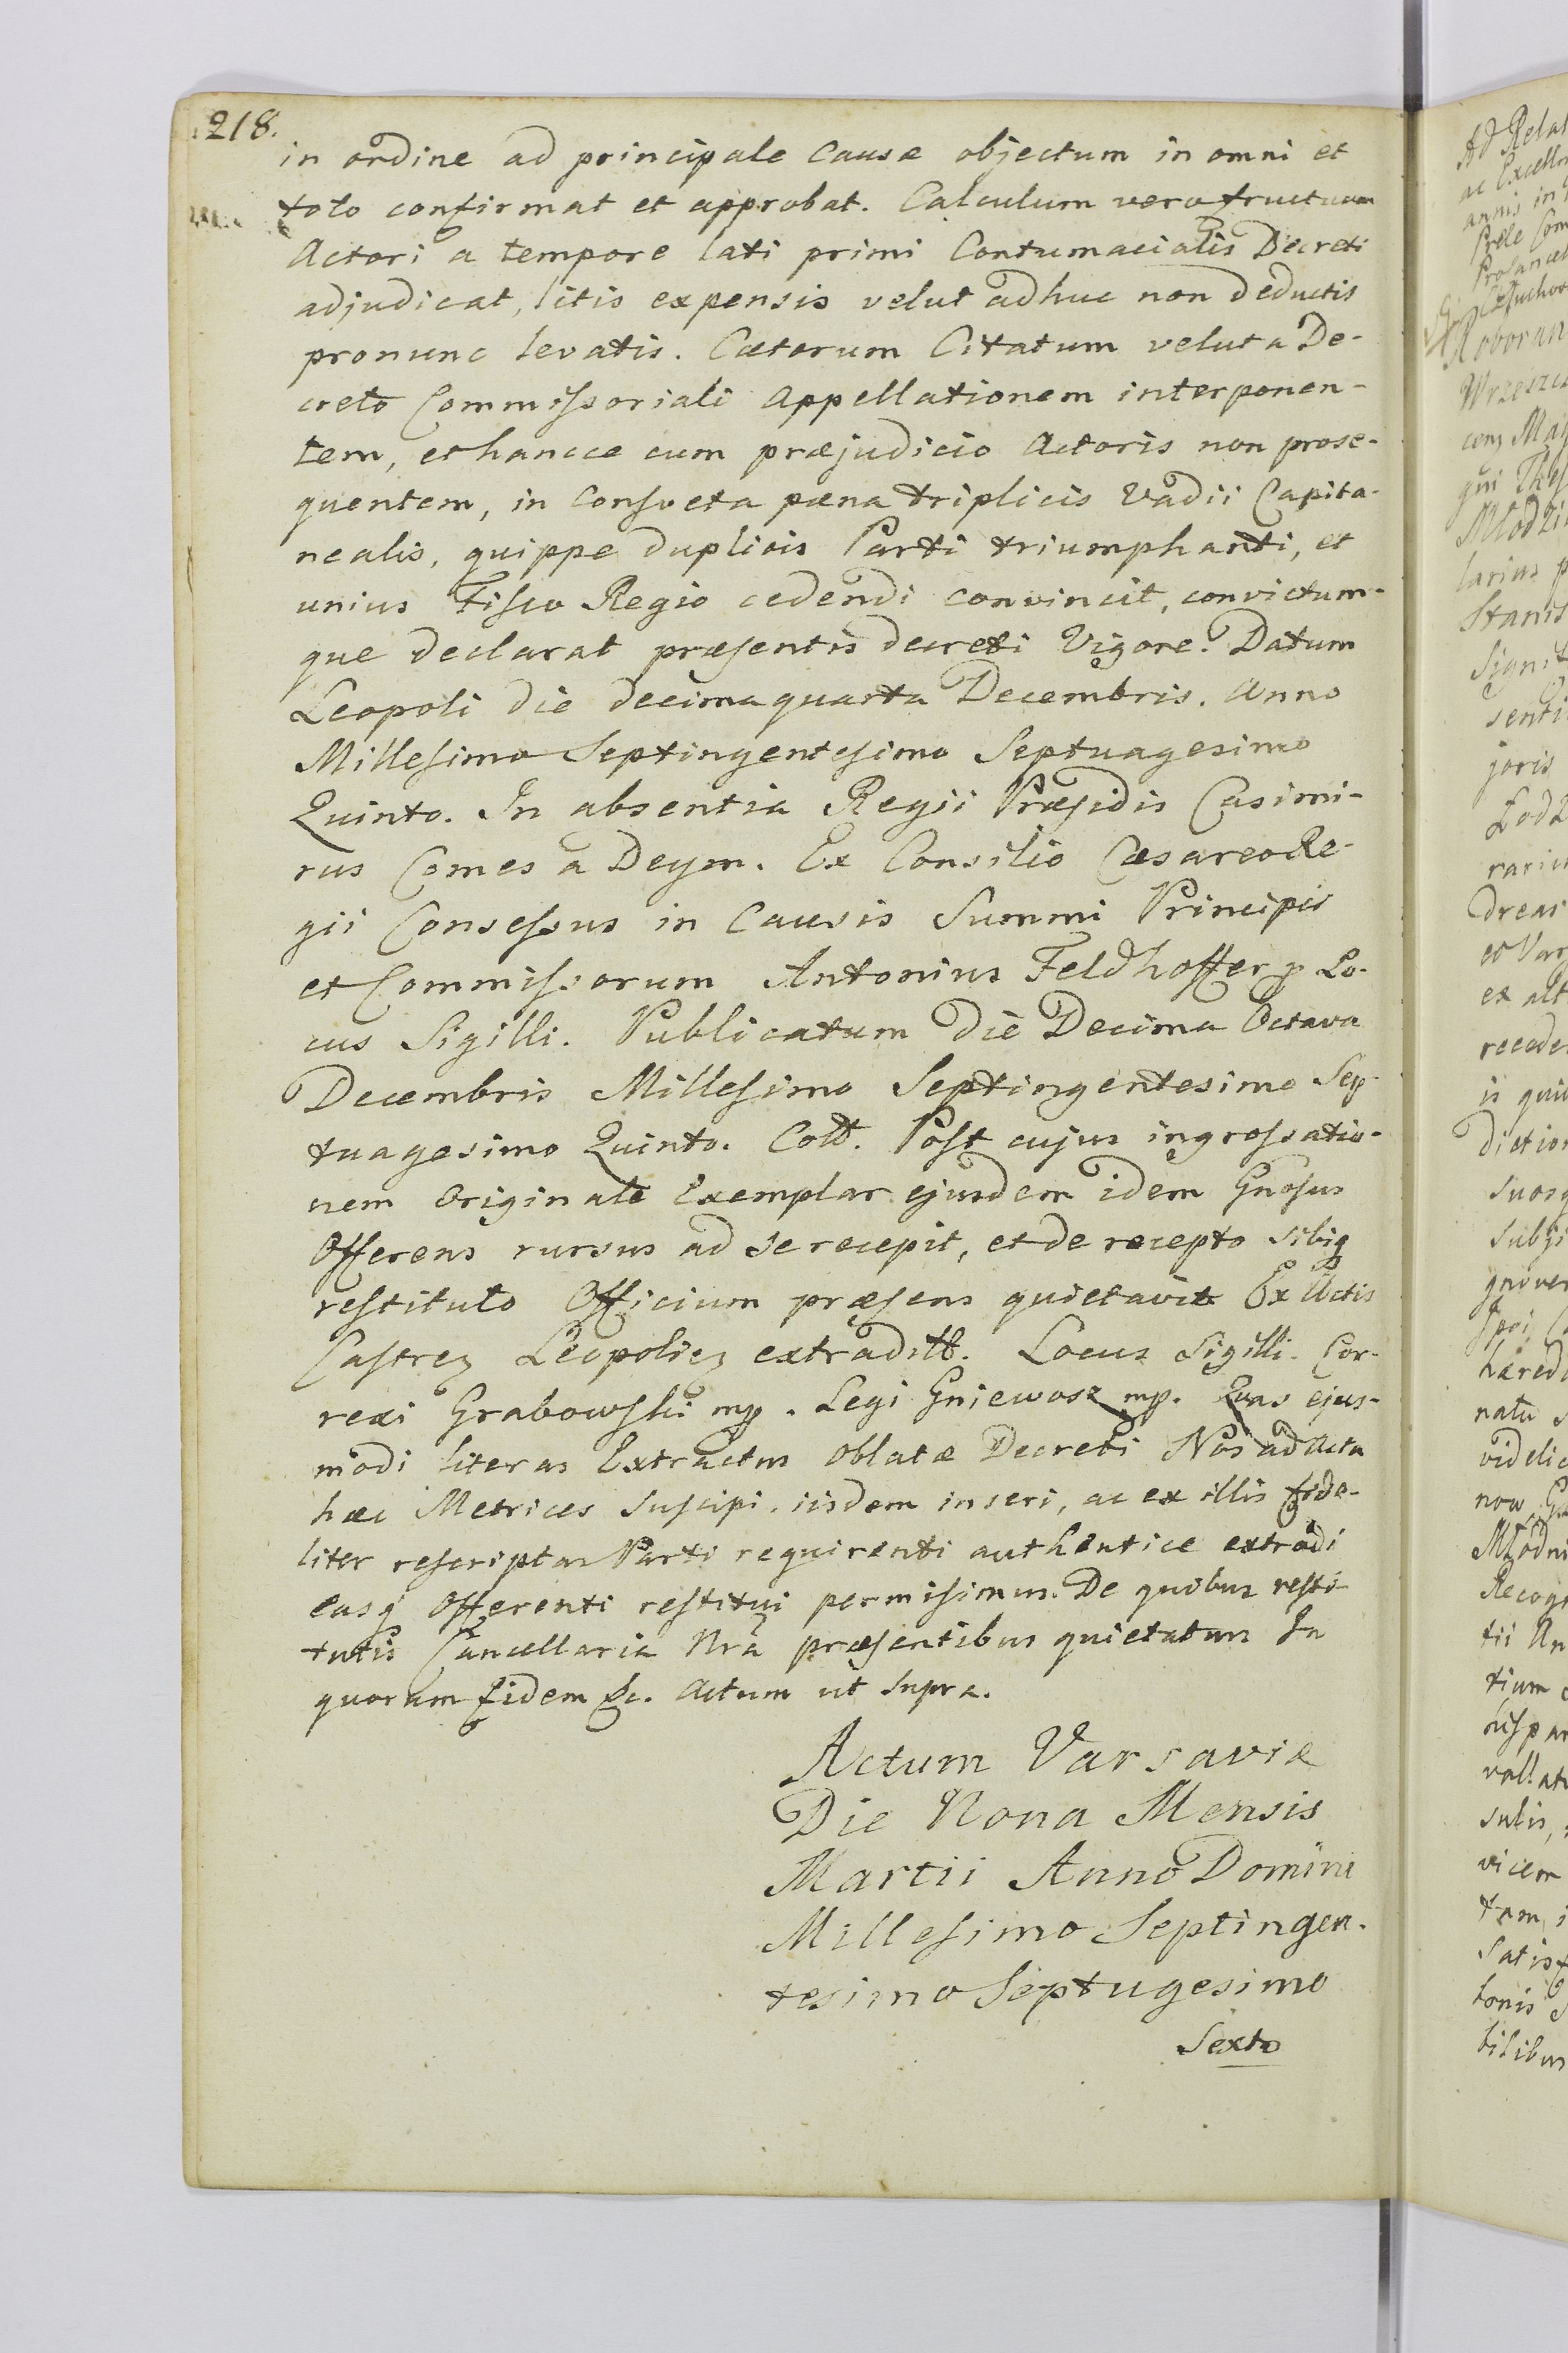 218.
in ordine ad principale Causæ objectum in omni et
toto confirmat et approbat. Calculum vero fructuum
Actori a tempore lati primi Contumacialis Decreti
adjudicat, litis expensis velut adhuc non deductis
pronunc levatis. Cæterum Citatum velut a De-
creto Commissoriali Appellationem interponen-
tem, et hancce cum præjudicio Actoris non prose-
quentem, in Consveta pæna triplicis Vadii Capita-
nealis, quippe duplicis Parti triumphanti, et
unius Fisco Regio cedendi convincit, convictum-
que declarat præsentis decreti Vigore. Datum
Leopoli die decima quarta Decembris. Anno
Millesimo Septingentesimo Septuagesimo
Quinto. In absentia Regii Præsidis Casimi-
rus Comes a Deym. Ex Consilio Cæsareo Re-
gii Consessus in Causis Summi Principis
et Commissorum Antonius Feldhoffer Lo-
cus Sigilli. Publicatum Die Decima Octava
Decembris Millesimo Septingentesimo Sep-
tuagesimo Quinto. Coll. Post cujus ingrossatio-
nem Originale Exemplar ejusdem idem Gnosus
Offerens rursus ad se recepit, et de recepto sibiq
restituto Officium præsens quietavit Ex Actis
Castrez Leopoliez extraditt. Locus Sigilli. Cor-
rexi Grabowski mp. Legi Gniewosz mp. Quas ejus-
modi literas Extractus Oblatæ Decreti Nos ad Acta
hæc Metrices Suscipi. iisdem inseri, ac ex illis fide-
liter rescriptas Parti requirenti authentice extradi
easq Offerenti restitui permisimus. De quibus resti-
tutis Cancellaria Nra præsentibus quietatur. In
quorum fidem &c. Actum ut Supra.
Actum Varsaviæ
Die Nona Mensis
Martii Anno Domini
Millesimo Septingen-
tesimo Septugesimo
Sexto
Ad Relat
ac Excelln
annis in
Præle Com
Procancel
Roboran
Wrzeszcz
cenz Maj
qui Thes
Młodzi
larius p
Stanis
Signit
senti
joris
Łodz
rariu
dreas
et Var
ex alt
recede
is qui
diction
suosq
subji
gnover
hæred
natu
videlic
now, G
Młodni
Recog
tii An
tium
rispa
vallat
sulis,
vicem
tam, i
satisf
tonis
bilibus